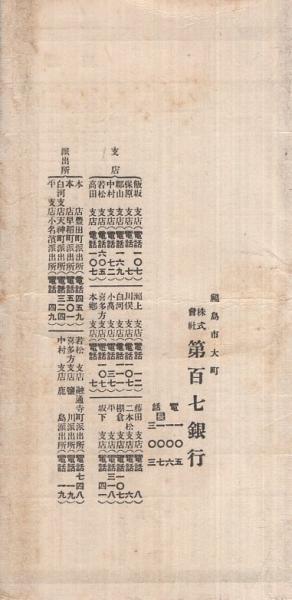 福島市大町
株式會社 第百七銀行
電話 一〇五 一〇六 三〇三
支店
飯坂支店(電話一〇七)
保原支店(電話
郡山支店(電話一六九)
中村支店(電話七二)
若松支店(電話六〇五)
高田支店(電話一〇七)
瀬上支店(電話一二)
川俣支店(電話
白河支店(電話
小高支店(電話三七)
喜多方支店(電話
本郷支店(電話一〇七)
藤田支店(電話八)
二本松支店(電話
棚倉支店(電話一〇七)
平支店(電話三四一)
坂下支店(電話一八)
派出所
本店豊田町派出所(電話四五九)
本店早稲町派出所(電話五〇一)
白河支店天神町派出所(電話三二四)
平支店小名濱派出所(電話四九)
若松支店融通寺町派出所(電話七四八)
喜多方支店鹽川派出所(電話一九)
中村支店鹿島派出所(電話一九)